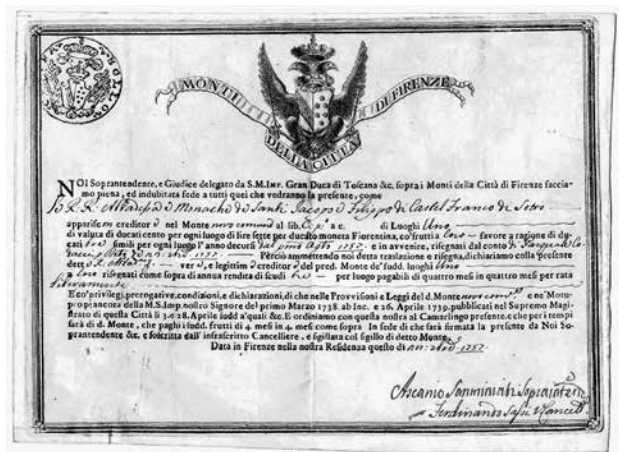 BOLLO
MONTI
DI FIRENZE
DELLA CITTA
NOI Soprantendente, e Giudice delegato da S.M.IMP. Gran Duca di Toscana &c. sopra i Monti della Città di Firenze faccia-
mo piena, ed indubitata fede a tutti quei che vedranno la presente, come
Le R.R. Madri Badessa e Monache di Santi Jacopo e Filippo di Castel Franco di Sotto
appariscon creditor nel Monte non comune al lib. a c. di Luoghi Uno
di valuta di ducati cento per ogni luogo di lire sette per ducato moneta Fiorentina, co'frutti a loro favore a ragione di du-
cati tre simili per ogni luogo l'anno decursi dal primo Agto 1757. e in avvenire, risegnati dal conto di Pasquale
1757. Perciò ammettendo noi detta traslazione e risegna, dichiariamo colla presente
dett R. Madri ver e, e legittim e creditor del pred. Monte de' sudd. luoghi Uno
a loro risegnati come sopra di annua rendita di scudi tre per luogo pagabili di quattro mesi in quattro mesi per rata
liberamente
E co'privilegj, prerogative, condizioni, e dichiarazioni, di che nelle Provvisioni e Leggi del d. Monte non com. e ne' Motu-
proprj ancora della M.S.Imp. nostro Signore del primo Marzo 1738. ab Inc. e 26. Aprile 1739. pubblicati nel Supremo Magi-
strato di questa Città li 3. e 28. Aprile sudd a'quali &c. E ordiniamo con questa nostra al Camarlingo presente, e che per i tempi
sarà di d. Monte, che paghi i sudd. frutti di 4. mesi in 4. mesi come sopra In fede di che sarà firmata la presente da Noi So-
prantendente &c. e soscritta dall' infrascritto Cancelliere, e sigillata col sigillo di detto Monte.
Data in Firenze nella nostra Residenza questo dì 1757.
Ascanio Sanminiati Sopraintend.
Ferdinando Cancell.